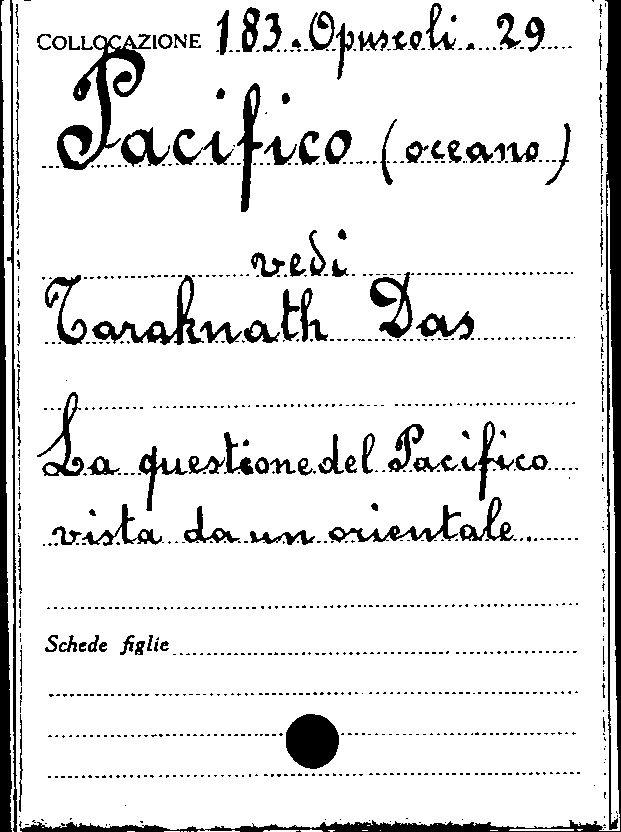 COLLOCAZIONE 183. Opuscoli. 29
Pacifico (oceano)
vedi
Taraknath Das
La questione del Pacifico
vista da un orientale.
Schede figlie